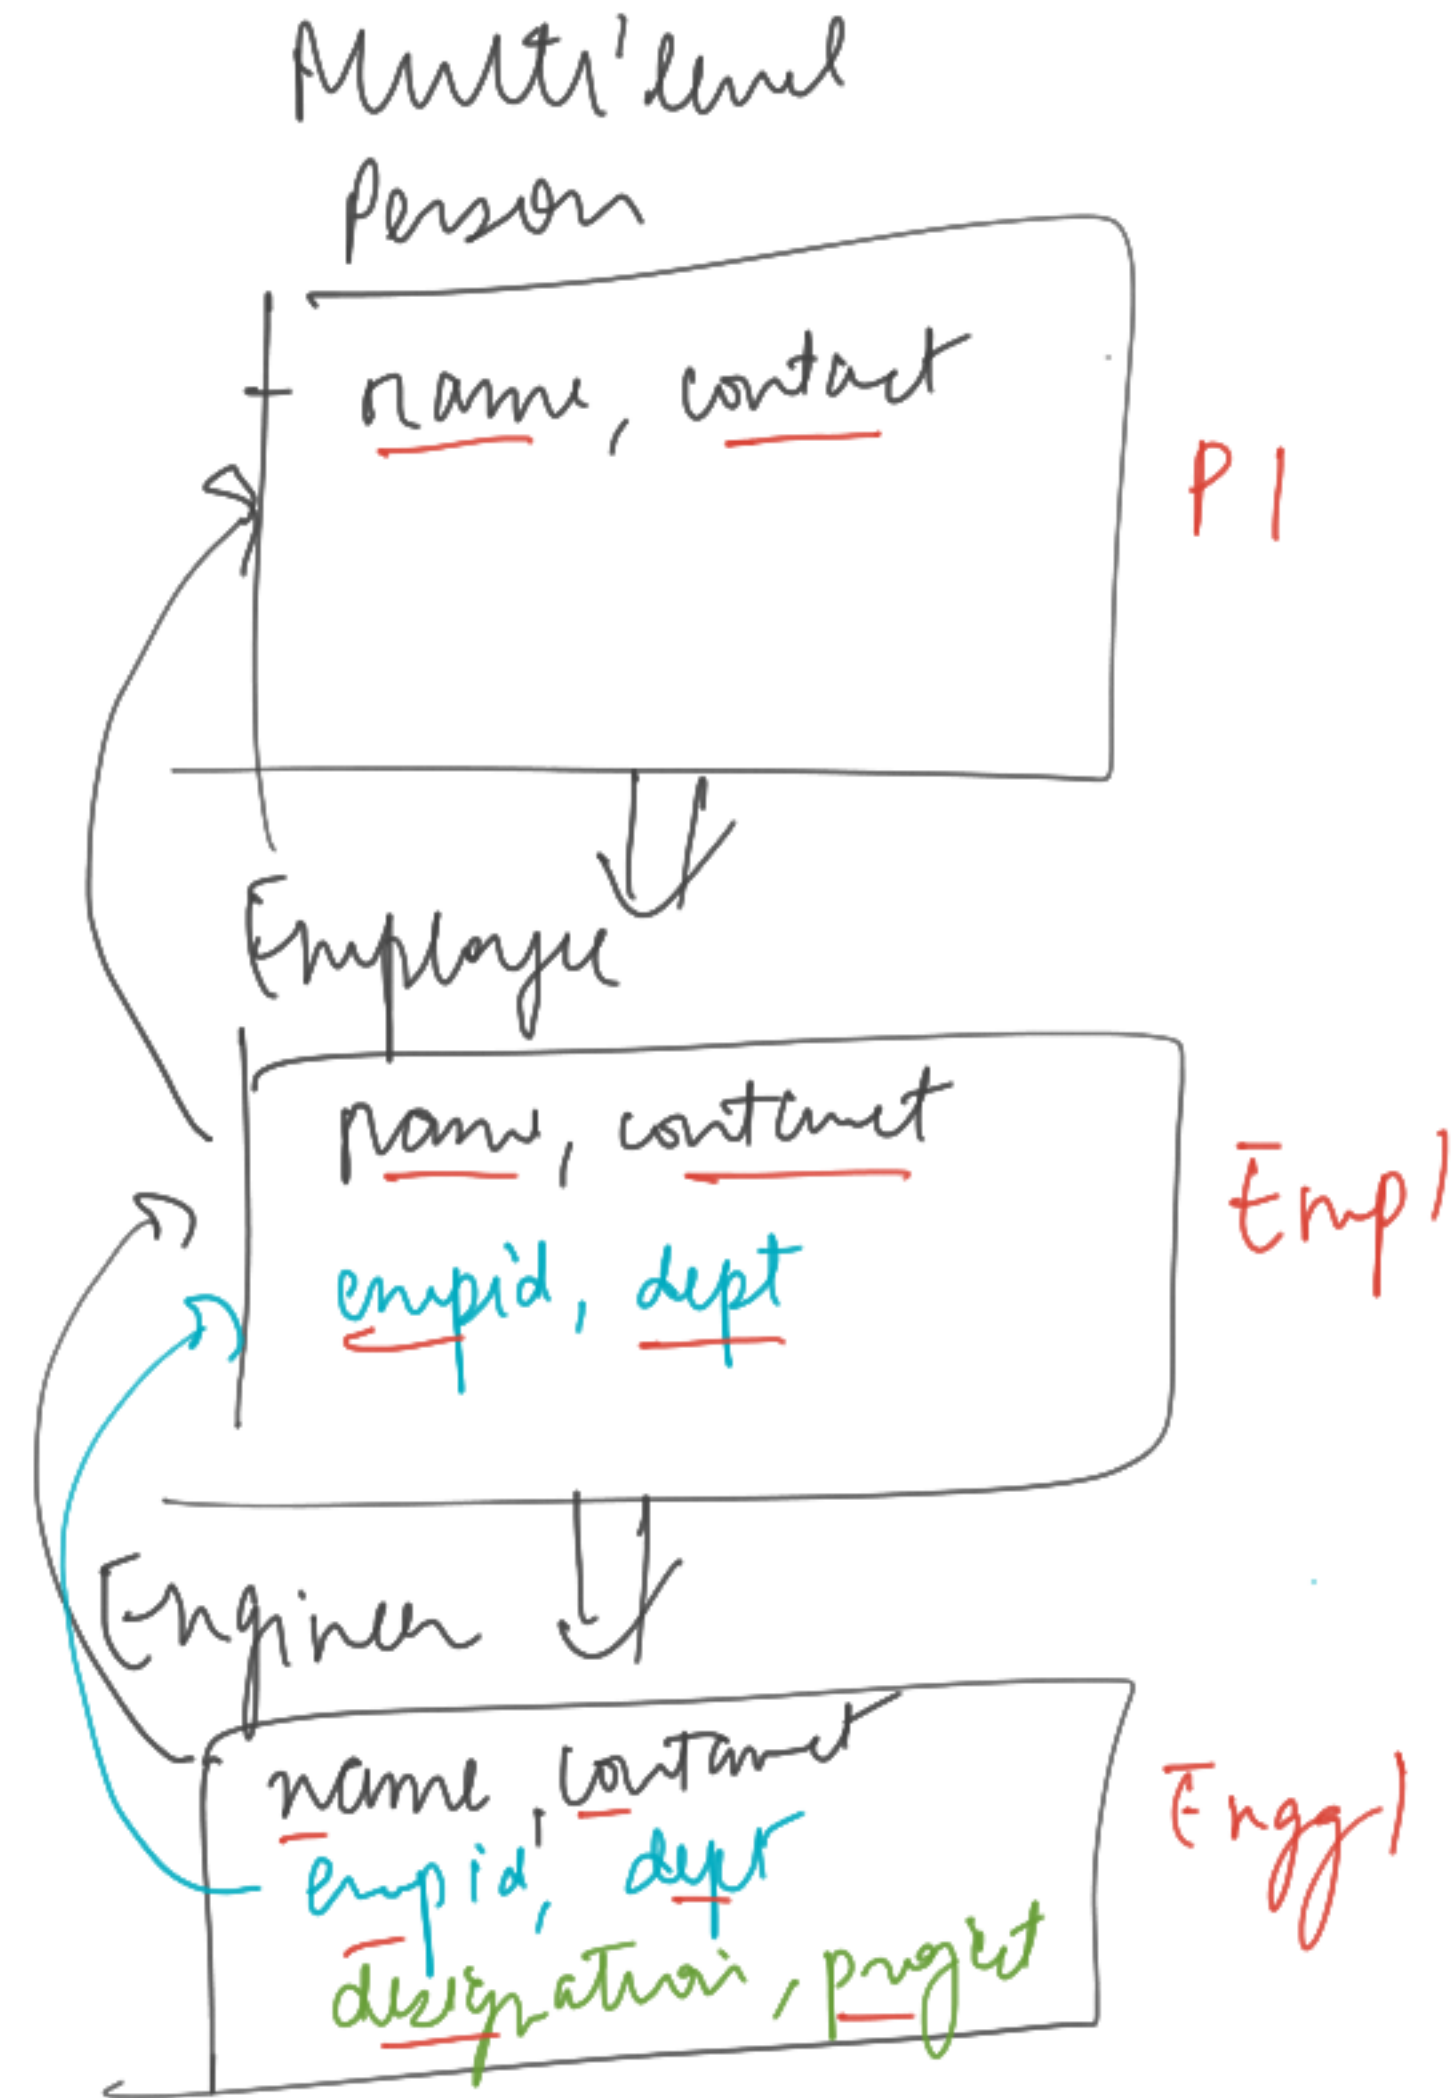 Multilevel
Person
name, contact
P1
Employee
name, contact
empid, dept
Emp1
Engineer
name, contact
empid, dept
designation, project
Engg1